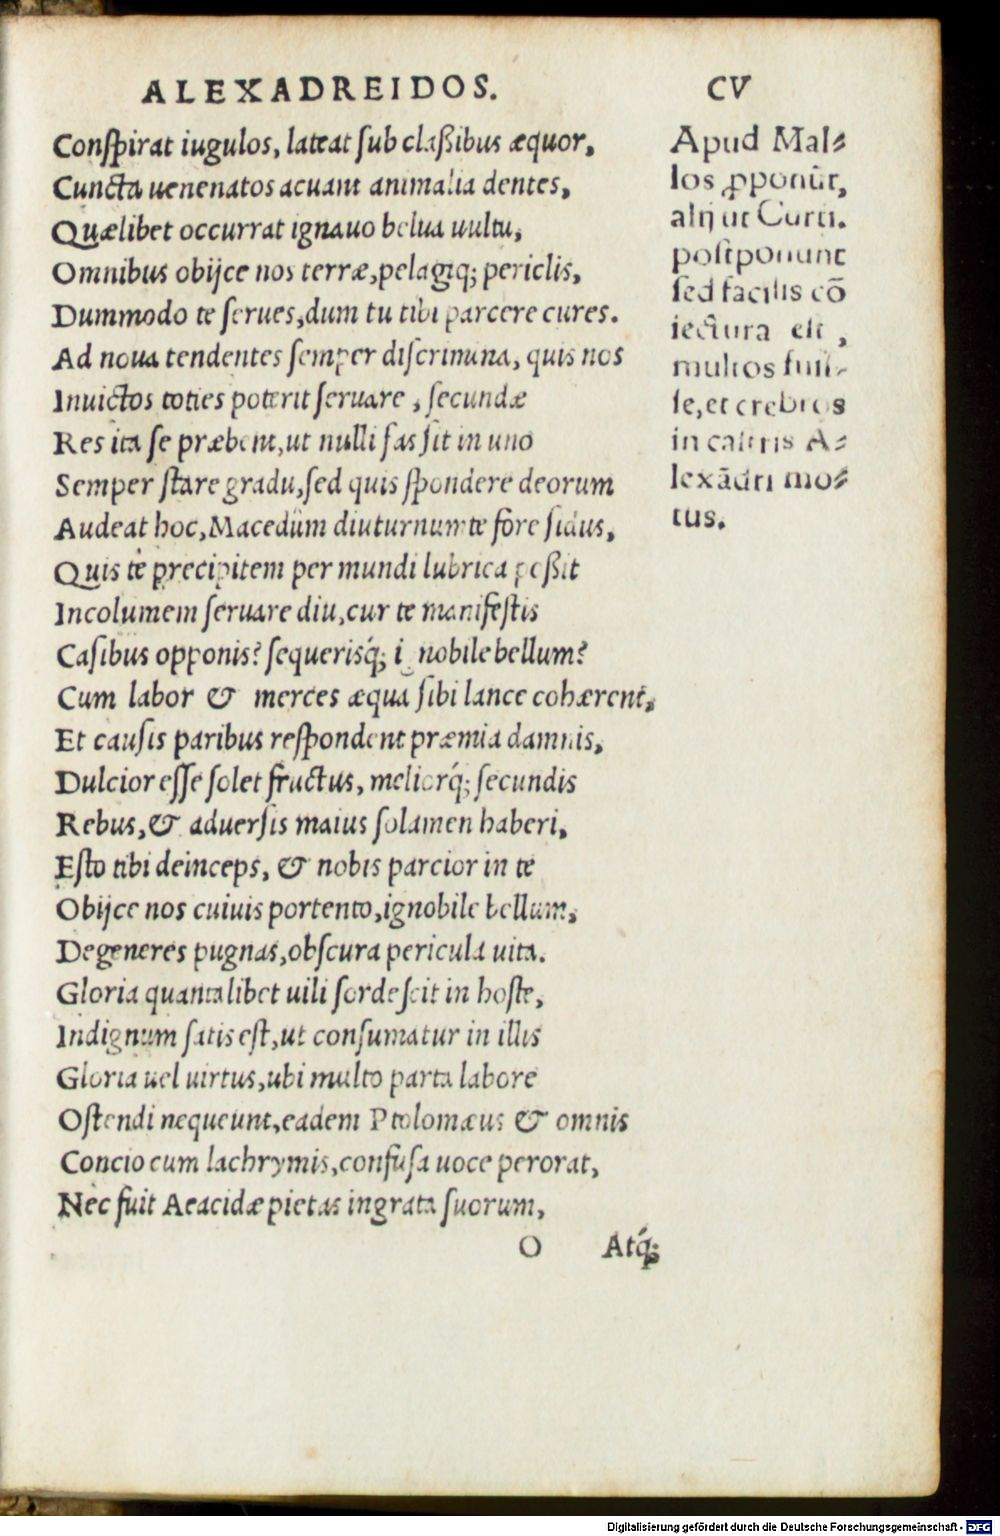 ALEXADREIDOS. CV
Conſpirat iugulos, lateat ſub claßibus æquor,
Cuncta uenenatos acuant animalia dentes,
Quælibet occurrat ignauo belua uultu,
Omnibus obijce nos terræ, pelagiq; periclis,
Dummodo te ſerues, dum tu tibi parcere cures.
Ad noua tendentes ſemper diſcrimina, quis nos
Inuictos toties poterit ſeruare, ſecundæ
Res ita ſe præbent, ut nulli fas ſit in uno
Semper ſtare gradu, ſed quis ſpondere deorum
Audeat hoc, Macedûm diuturnum te fore ſidus,
Quis te precipitem per mundi lubrica poßit
Incolumem ſeruare diu, cur te manifeſtis
Caſibus opponis? ſequerisq́; nobile bellum?
Cum labor & merces æqua ſibi lance cohærent,
Et cauſis paribus reſpondent præmia damnis,
Dulcior eſſe ſolet fructus, meliorq́; ſecundis
Rebus, & aduerſis maius ſolamen haberi,
Eſto tibi deinceps, & nobis parcior in te
Obijce nos cuiuis portento, ignobile bellum,
Degeneres pugnas, obſcura pericula uita.
Gloria quantalibet uili ſordeſcit in hoſte,
Indignum ſatis eſt, ut conſumatur in illis
Gloria uel uirtus, ubi multo parta labore
Oſtendi nequeunt, eadem Ptolomæus & omnis
Concio cum lachrymis, confuſa uoce perorat,
Nec fuit Aeacidæ pietas ingrata ſuorum,
O Atq́;
Apud Mal⸗
los ꝓponũt,
alij ut Curti.
poſtponunt
ſed facilis cõ
iectura eſt,
multos fuiſ⸗
ſe, et crebros
in caſtris A⸗
lexãdri mo⸗
tus.
Digitalisierung gefördert durch die Deutsche Forschungsgemeinschaft - DFG